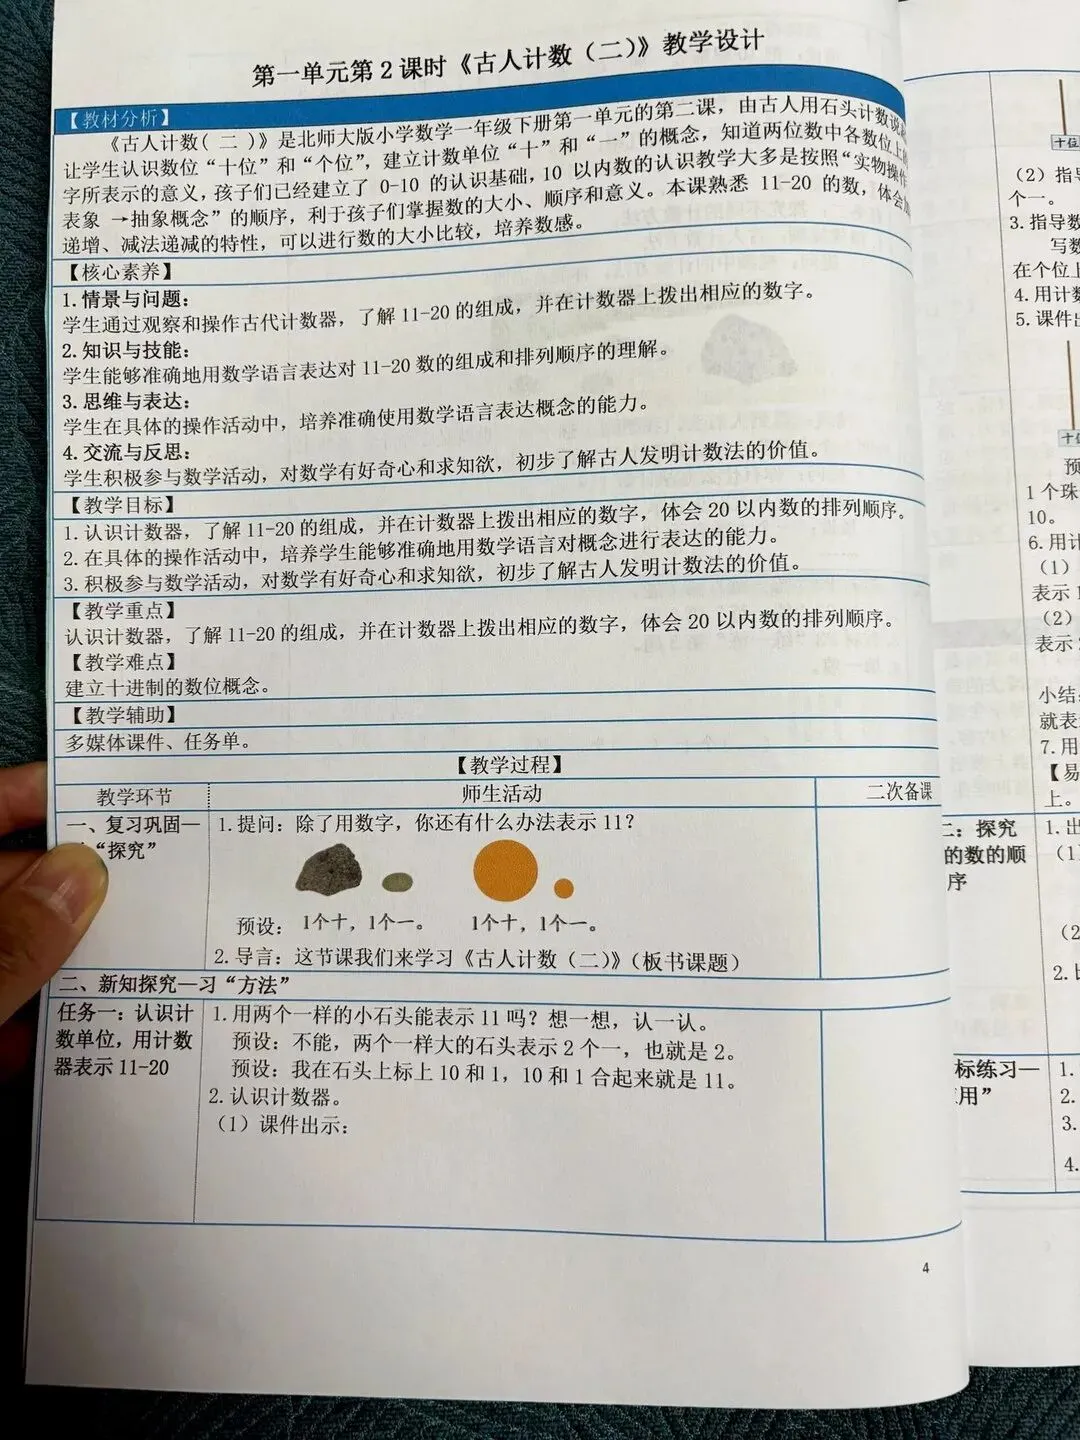 第一单元第2课时《古人计数（二）》教学设计
【教材分析】
《古人计数( 二 )》是北师大版小学数学一年级下册第一单元的第二课，由古人用石头计数说
让学生认识数位“十位”和“个位”，建立计数单位“十”和“一”的概念，知道两位数中各数位上
字所表示的意义，孩子们已经建立了 0-10 的认识基础，10 以内数的认识教学大多是按照“实物操作
表象 →抽象概念”的顺序，利于孩子们掌握数的大小、顺序和意义。本课熟悉 11-20 的数，体会
递增、减法递减的特性，可以进行数的大小比较，培养数感。
【核心素养】
1.情景与问题：
学生通过观察和操作古代计数器，了解11-20的组成，并在计数器上拨出相应的数字。
2.知识与技能：
学生能够准确地用数学语言表达对11-20数的组成和排列顺序的理解。
3.思维与表达：
学生在具体的操作活动中，培养准确使用数学语言表达概念的能力。
4.交流与反思：
学生积极参与数学活动，对数学有好奇心和求知欲，初步了解古人发明计数法的价值。
【教学目标】
1.认识计数器，了解11-20的组成，并在计数器上拨出相应的数字，体会20以内数的排列顺序。
2.在具体的操作活动中，培养学生能够准确地用数学语言对概念进行表达的能力。
3.积极参与数学活动，对数学有好奇心和求知欲，初步了解古人发明计数法的价值。
【教学重点】
认识计数器，了解11-20的组成，并在计数器上拨出相应的数字，体会20以内数的排列顺序。
【教学难点】
建立十进制的数位概念。
【教学辅助】
多媒体课件、任务单。
【教学过程】
教学环节 师生活动 二次备课
一、复习巩固—
“探究”
1.提问：除了用数字，你还有什么办法表示11？
预设：1个十，1个一。 1个十，1个一。
2.导言：这节课我们来学习《古人计数（二）》（板书课题）
二、新知探究—习“方法”
任务一：认识计
数单位，用计数
器表示11-20
1.用两个一样的小石头能表示11吗？想一想，认一认。
预设：不能，两个一样大的石头表示2个一，也就是2。
预设：我在石头上标上10和1，10和1合起来就是11。
2.认识计数器。
（1）课件出示：
4
十位
（2）指导
个一。
3.指导数
写数
在个位上
4.用计数
5.课件出
十位
预
1个珠
10。
6.用计
（1）
表示1
（2）
表示
小结：
就表
7.用
【易
上。
二：探究
的数的顺
序
1.出
（1
（2
2.比
标练习—
用”
1.
2.
3.
4.